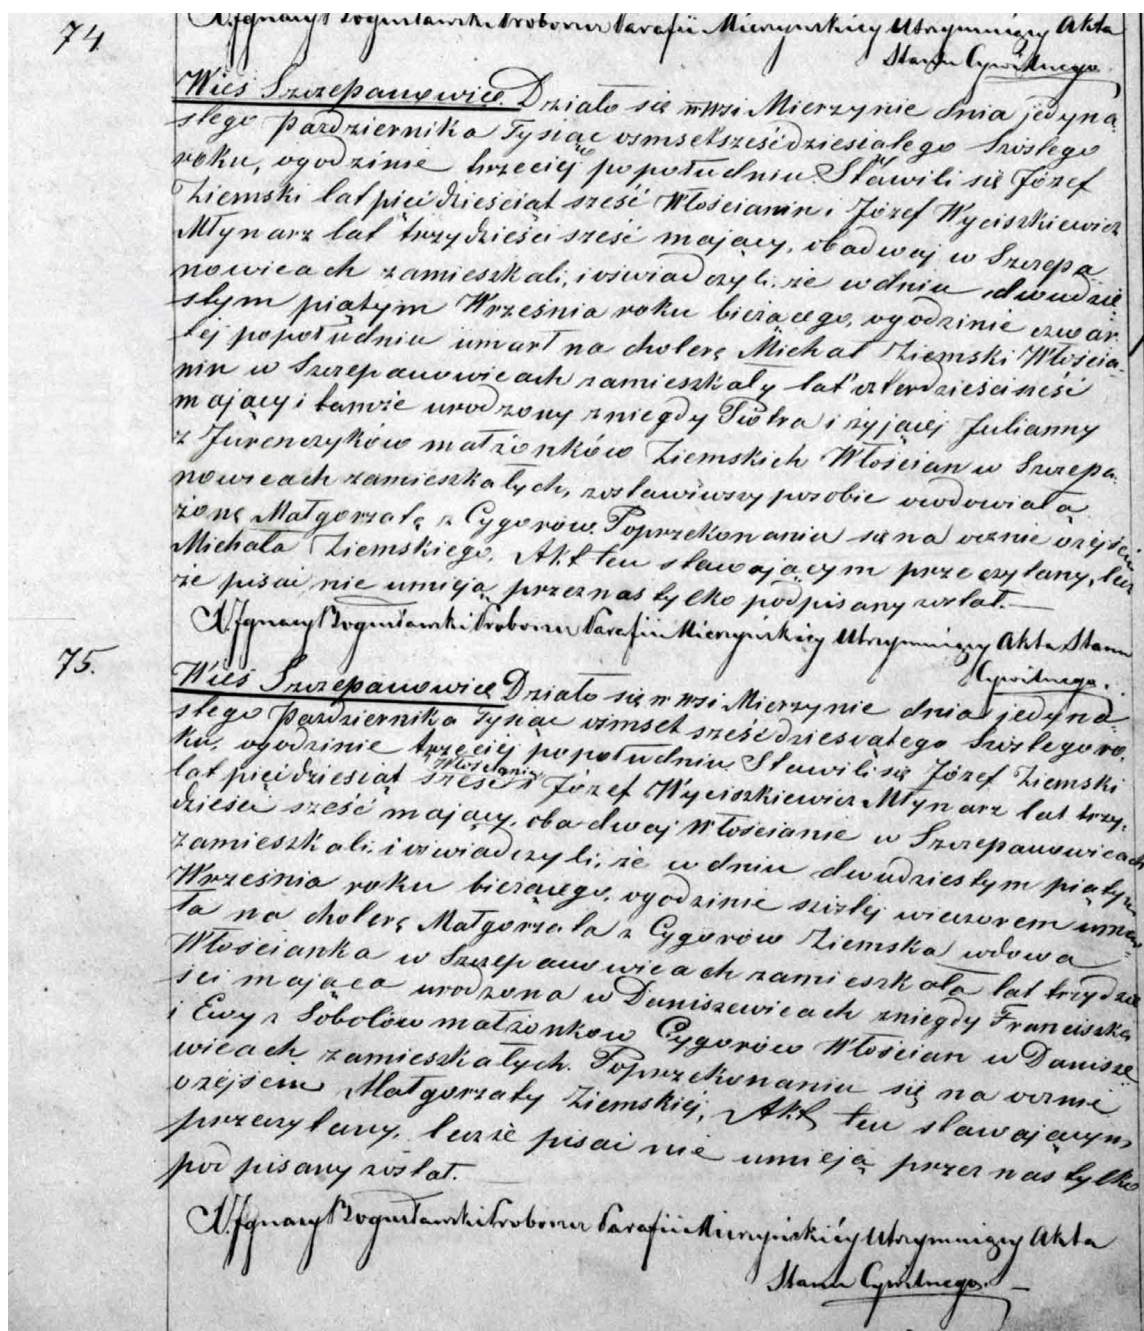 74
X. Ignacy Bogusławski Proboszcz Parafii Mierzyńskiey Utrzymuiący Akta
Stanu Cywilnego.
Wieś Szczepanowice. Działo się w wsi Mierzynie dnia jedyna
stego Października Tysiąc ośmset sześćdziesiątego szóstego
roku, o godzinie trzeciej popołudniu. Stawili się Józef
Ziemski lat pięćdziesiąt sześć Włościanin i Józef Wyciszkiewicz
Młynarz lat trzydzieści sześć mający, obadwaj w Szczepa
nowicach zamieszkali, i oświadczyli, że w dniu dwudzie
stym piątym Września roku bieżącego, o godzinie czwar
tej popołudniu umarł na cholerę Michał Ziemski Włościa-
nin w Szczepanowicach zamieszkały lat czterdzieści sześć
mający i tamże urodzony z niegdy Piotra i żyjącej Julianny
z Jurenczyków małżonków Ziemskich Włościan w Szczepa-
nowicach zamieszkałych, zostawiwszy po sobie owdowiałą
żonę Małgorzatę z Cygorów. Po przekonaniu się na ocznie o zejściu
Michała Ziemskiego. Akt ten stawającym przeczytany, lecz
że pisać nie umieją przez nas tylko podpisany został.—
X. Ignacy Bogusławski Proboszcz Parafii Mierzyńskiey Utrzymuiący Akta Stanu
Cywilnego.
75.
Wieś Szczepanowice Działo się w wsi Mierzynie dnia jedyna
stego Października Tysiąc ośmset sześćdziesiątego szóstego ro
ku, o godzinie trzeciej popołudniu. Stawili się Józef Ziemski
lat pięćdziesiąt sześć Włościanin i Józef Wyciszkiewicz Młynarz lat trzy-
dzieści sześć mający, obadwaj Włościanie w Szczepanowicach
zamieszkali, i oświadczyli, że w dniu dwudziestym piątym
Września roku bieżącego, o godzinie szóstej wieczorem umar-
ła na cholerę Małgorzata z Cygorów Ziemska wdowa
Włościanka w Szczepanowicach zamieszkała lat trzydzie
ści mająca urodzona w Daniszewicach z niegdy Franciszka
i Ewy z Sobolów małżonków Cygorów Włościan w Danisze
wicach zamieszkałych. Po przekonaniu się na ocznie
o zejściu Małgorzaty Ziemskiej. Akt ten stawającym
przeczytany, lecz że pisać nie umieją przez nas tylko
podpisany został.—
X. Ignacy Bogusławski Proboszcz Parafii Mierzyńskiéy Utrzymuiący Akta
Stanu Cywilnego.—